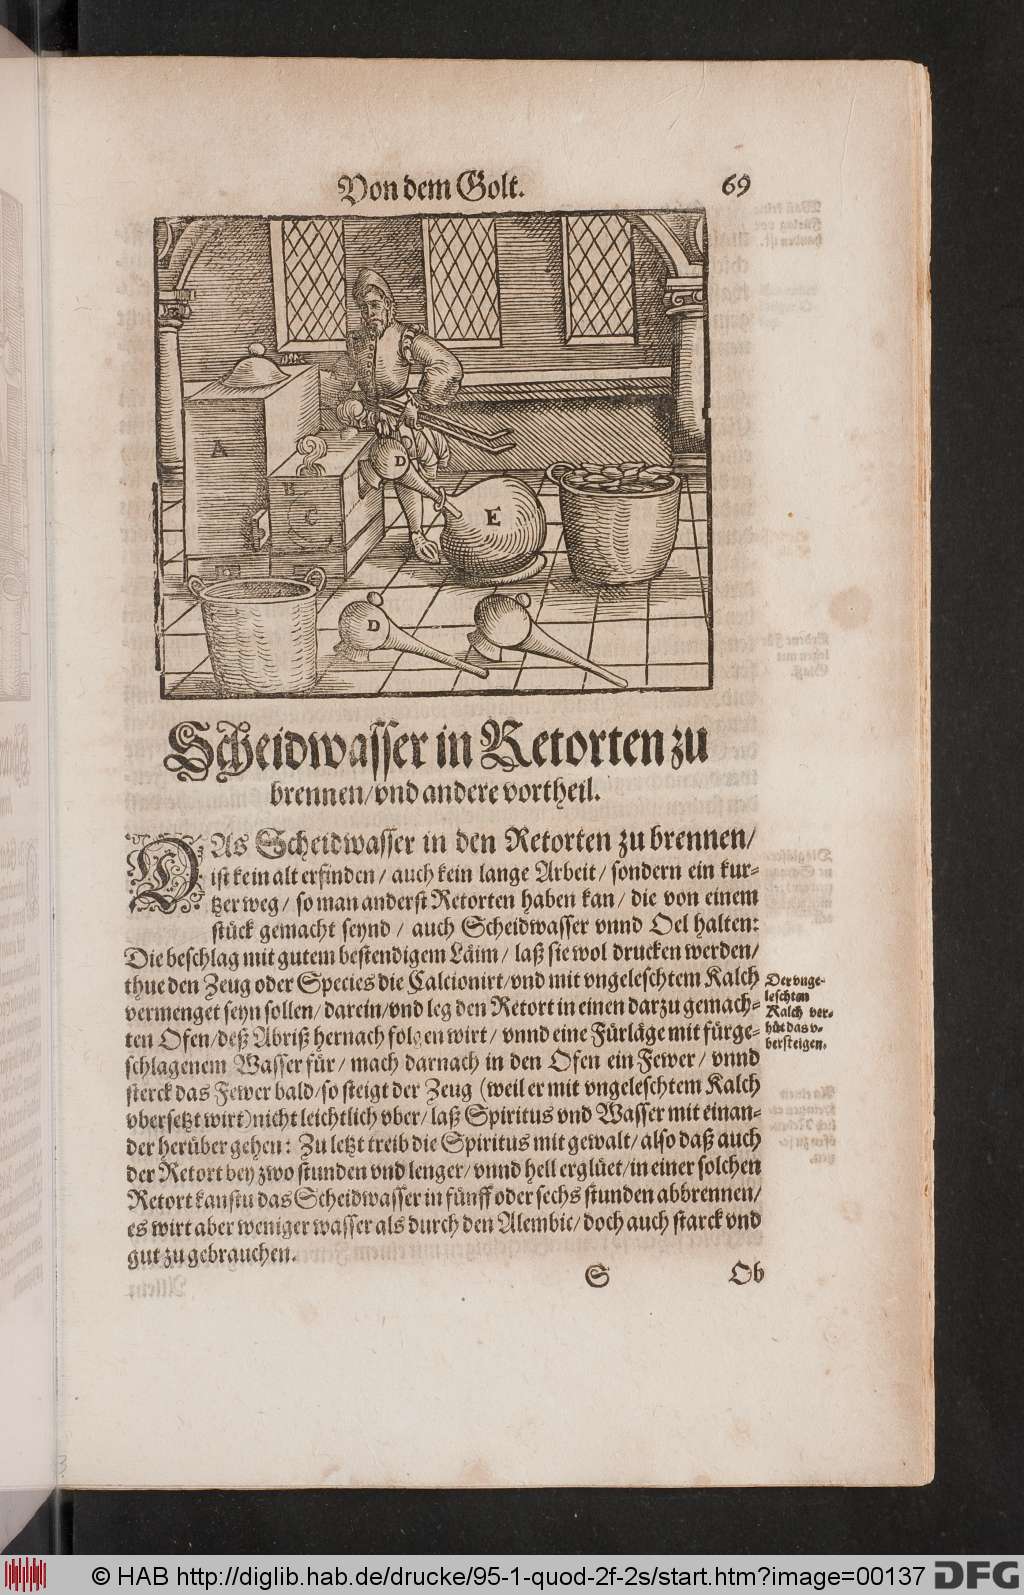 Von dem Golt.
69
A
B
C
D
E
D
Scheidwasser in Retorten zu
brennen/vnd andere vortheil.
DAs Scheidwasser in den Retorten zu brennen/
ist kein alt erfinden/ auch kein lange Arbeit/ sondern ein kur-
tzer weg/ so man anderst Retorten haben kan/ die von einem
stück gemacht seynd/ auch Scheidwasser vnnd Oel halten:
Die beschlag mit gutem bestendigem Läim/ laß sie wol drucken werden/
thue den Zeug oder Species die Calcionirt/vnd mit vngeleschtem Kalch
vermenget seyn sollen/ darein/vnd leg den Retort in einen darzu gemach-
ten Ofen/deß Abriß hernach folgen wirt/ vnnd eine Fürläge mit fürge-
schlagenem Wasser für/ mach darnach in den Ofen ein Fewer/ vnnd
sterck das Fewer bald/so steigt der Zeug (weil er mit vngeleschtem Kalch
vbersetzt wirt) nicht leichtlich vber/laß Spiritus vnd Wasser mit einan-
der herüber gehen: Zu letzt treib die Spiritus mit gewalt/also daß auch
der Retort bey zwo stunden vnd lenger/vnnd hell erglüet/in einer solchen
Retort kanstu das Scheidwasser in fünff oder sechs stunden abbrennen/
es wirt aber weniger wasser als durch den Alembic/doch auch starck vnd
gut zu gebrauchen.
Der vnge-
leschten
Kalch ver-
hüt das v-
bersteigen.
S
Ob
© HAB http://diglib.hab.de/drucke/95-1-quod-2f-2s/start.htm?image=00137
DFG